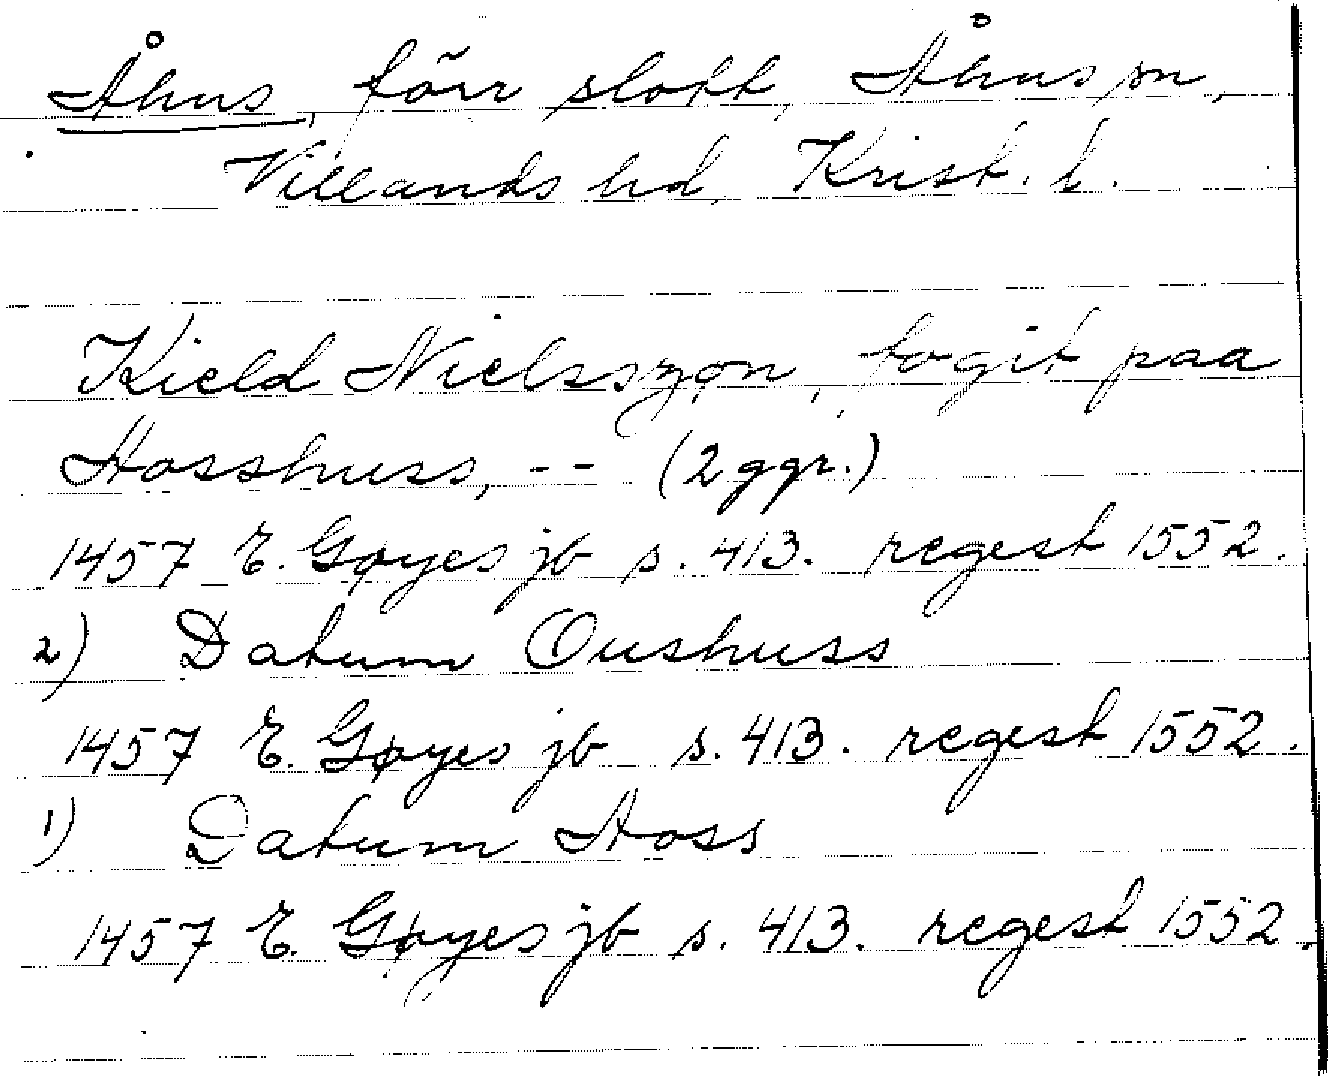 Åhus, förr slott, Åhus sn,
Villands hd, Krist. l.
Kield Nielsszøn, fogit paa
Aosshuss, -- (2 ggr.)
1457 E. Gøyes jb s. 413. regest 1552.
2) Datum Oushuss
1457 E. Gøyes jb s. 413. regest 1552.
1) Datum Aoss
1457 E. Gøyes jb s. 413. regest 1552.